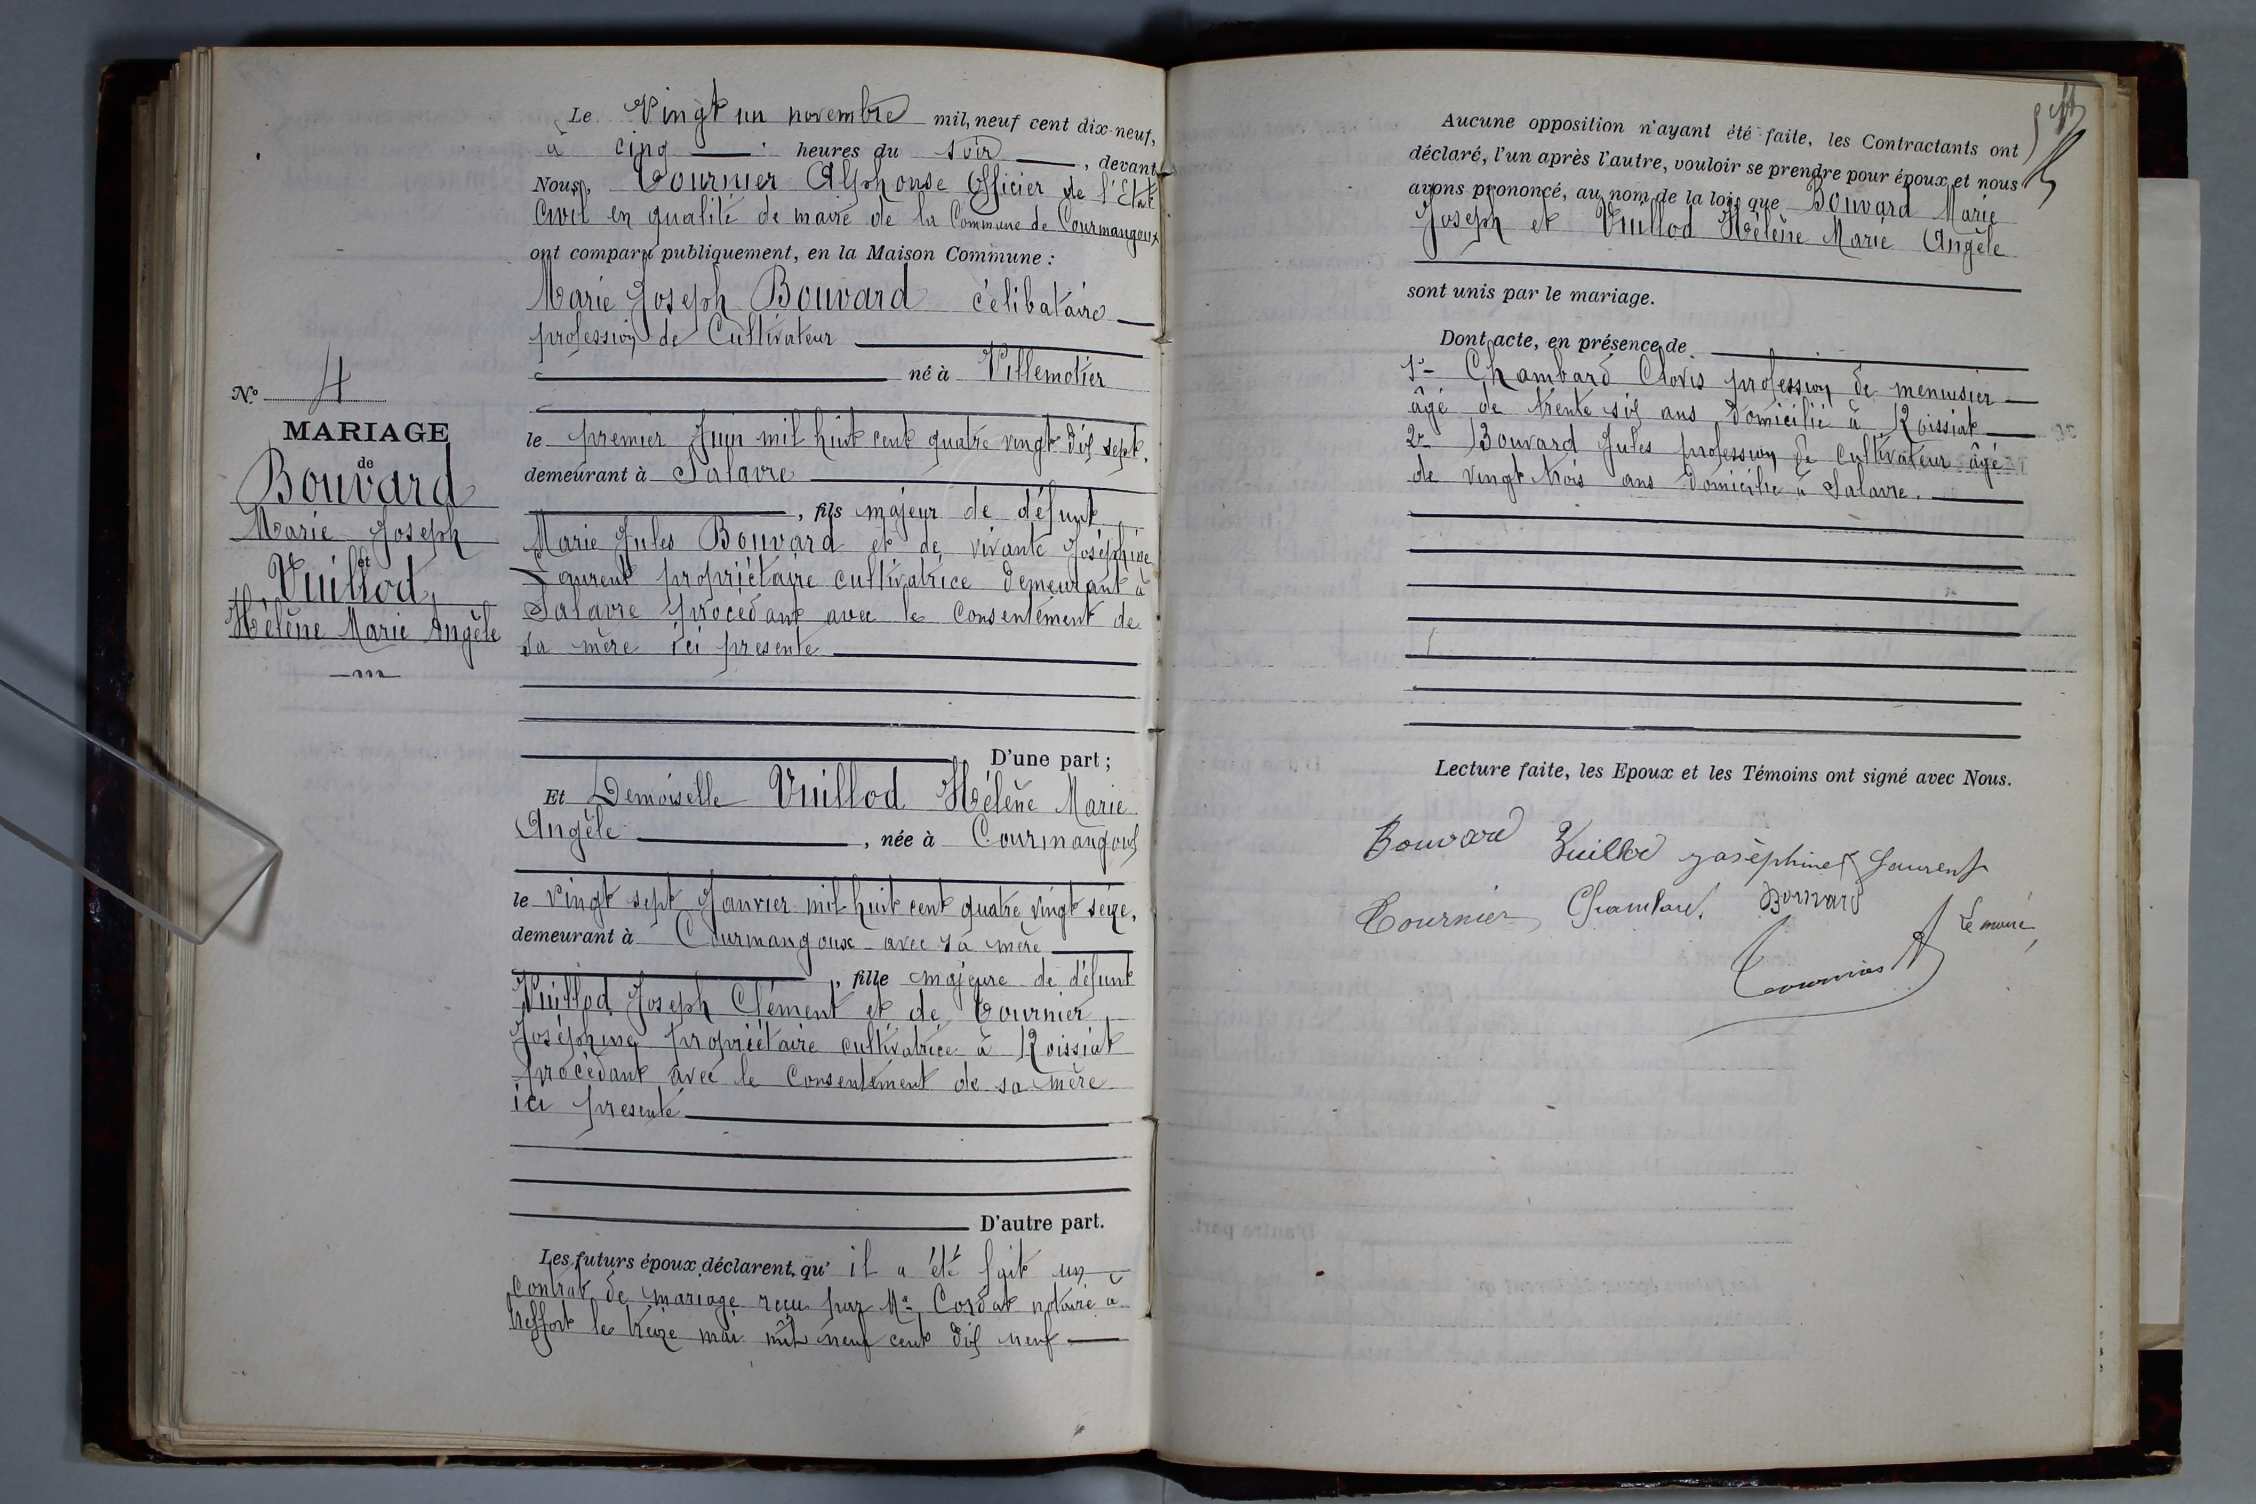 Le Vingt un novembre mil neuf cent dix-neuf,
à cinq heures du soir, devant
Nous, Tournier Alphonse Officier de l'Etat
Civil en qualité de maire de la Commune de Courmangoux
ont comparu publiquement, en la Maison Commune :
Marie Joseph Bouvard célibataire
profession de Cultivateur
né à Villemotier
le premier Juin mil huit cent quatre vingt dix sept.
demeurant à Salavre
, fils majeur de défunt
Marie Jules Bouvard et de vivante Joséphine
Laurent propriétaire cultivatrice demeurant à
Salavre procédant avec le consentement de
sa mère ici présente
D'une part ;
Et Demoiselle Vuillod Hélène Marie
Angèle, née à Courmangoux
le vingt sept Janvier mil huit cent quatre vingt seize,
demeurant à Courmangoux avec sa mère
, fille majeure de défunt
Vuillod Joseph Clément et de Tournier
Joséphine propriétaire cultivatrice à Roissiat
procédant avec le consentement de sa mère
ici présente
D'autre part.
Les futurs époux déclarent qu'il a été fait un
contrat de mariage reçu par Me Cordat notaire à
Treffort le treize mai mil neuf cent dix neuf
No 4
MARIAGE
de
Bouvard
Marie Joseph
et
Vuillod,
Hélène Marie Angèle
Aucune opposition n'ayant été faite, les Contractants ont
déclaré, l'un après l'autre, vouloir se prendre pour époux et nous
avons prononcé, au nom de la loi, que Bouvard Marie
Joseph et Vuillod Hélène Marie Angèle
sont unis par le mariage.
Dont acte, en présence de
1° Chambard Clovis profession de menuisier
âgé de trente six ans domicilié à Roissiat
2° Bouvard Jules profession de cultivateur âgé
de vingt trois ans domicilié à Salavre.
Lecture faite, les Epoux et les Témoins ont signé avec Nous.
Bouvard Vuillod joséphine Laurent
Tournier Chambard. Bouvard
Le maire,
Tournier A